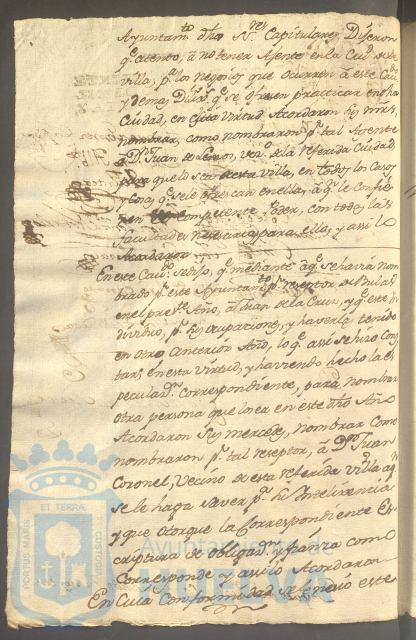 Ayuntam.to dhos S.res Capitulares, Dijeron
q.e atento, a no tener Ajente en la Ciud. de Sev.a
villa, p.a los negocios que ocurren a este Cav.do
y demas Dilix.s q.e se ofrecen practicar en dha
Ciudad, en cuia virtud Acordaron sus mrds,
nombrar, como nombraron p.r tal Ajente
a D.n Juan de vez.o de la referida Ciudad
para que lo sea de esta villa, en todos los Casos
y Cosas q.e se le ofrescan en ella, a q.n le confie-
ren Competente Poder, con todas las
facultades necesarias para ello, y asi lo
Acordaron
En este Cav.do se dijo, q.e mediante a q.e se havia nom-
brado p.r este Ayuntam.to p.r reseptor de
en el pres.te Año, a Juan de la Cruz, y q.e este
dividuo, p.r sus ocupaciones, y haverlo tenido
en otro anterior Año, lo q.e asi se hizo Cons-
tar; en esta virtud, y haviendo hecho la es-
peculaz.on correspondiente, para nombrar
otra persona que lo sea en este dho Año
Acordaron sus mercedes, nombrar como
nombraron p.r tal reseptor, a D.n Juan
Coronel, Vecino de esta referida villa, a q.n
se le haga saver p.a su Inteligencia
y que otorgue la Correspondiente Es-
criptura de obligaz.on y fianza como
Corresponde y asi lo Acordaron
En Cuia Conformidad se feneció este
PORTUS MARIS ET TERRAE CUSTODIA
Ayuntamiento de
HUELVA